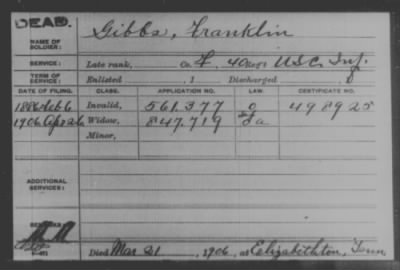 DEAD.
NAME OF SOLDIER:
Gibbs, Franklin
SERVICE:
Late rank, Co. F, 40 Reg't U.S.C. Inf.
TERM OF SERVICE:
Enlisted , 1 Discharged , 1
DATE OF FILING. CLASS. APPLICATION NO. LAW. CERTIFICATE NO.
1886 Feb 6 Invalid, 561.377 498925
1906 Apr 26 Widow, 847.719
Minor,
ADDITIONAL SERVICES:
REMARKS:
Died Mar 21, 1906, at Elizabethton, Tenn